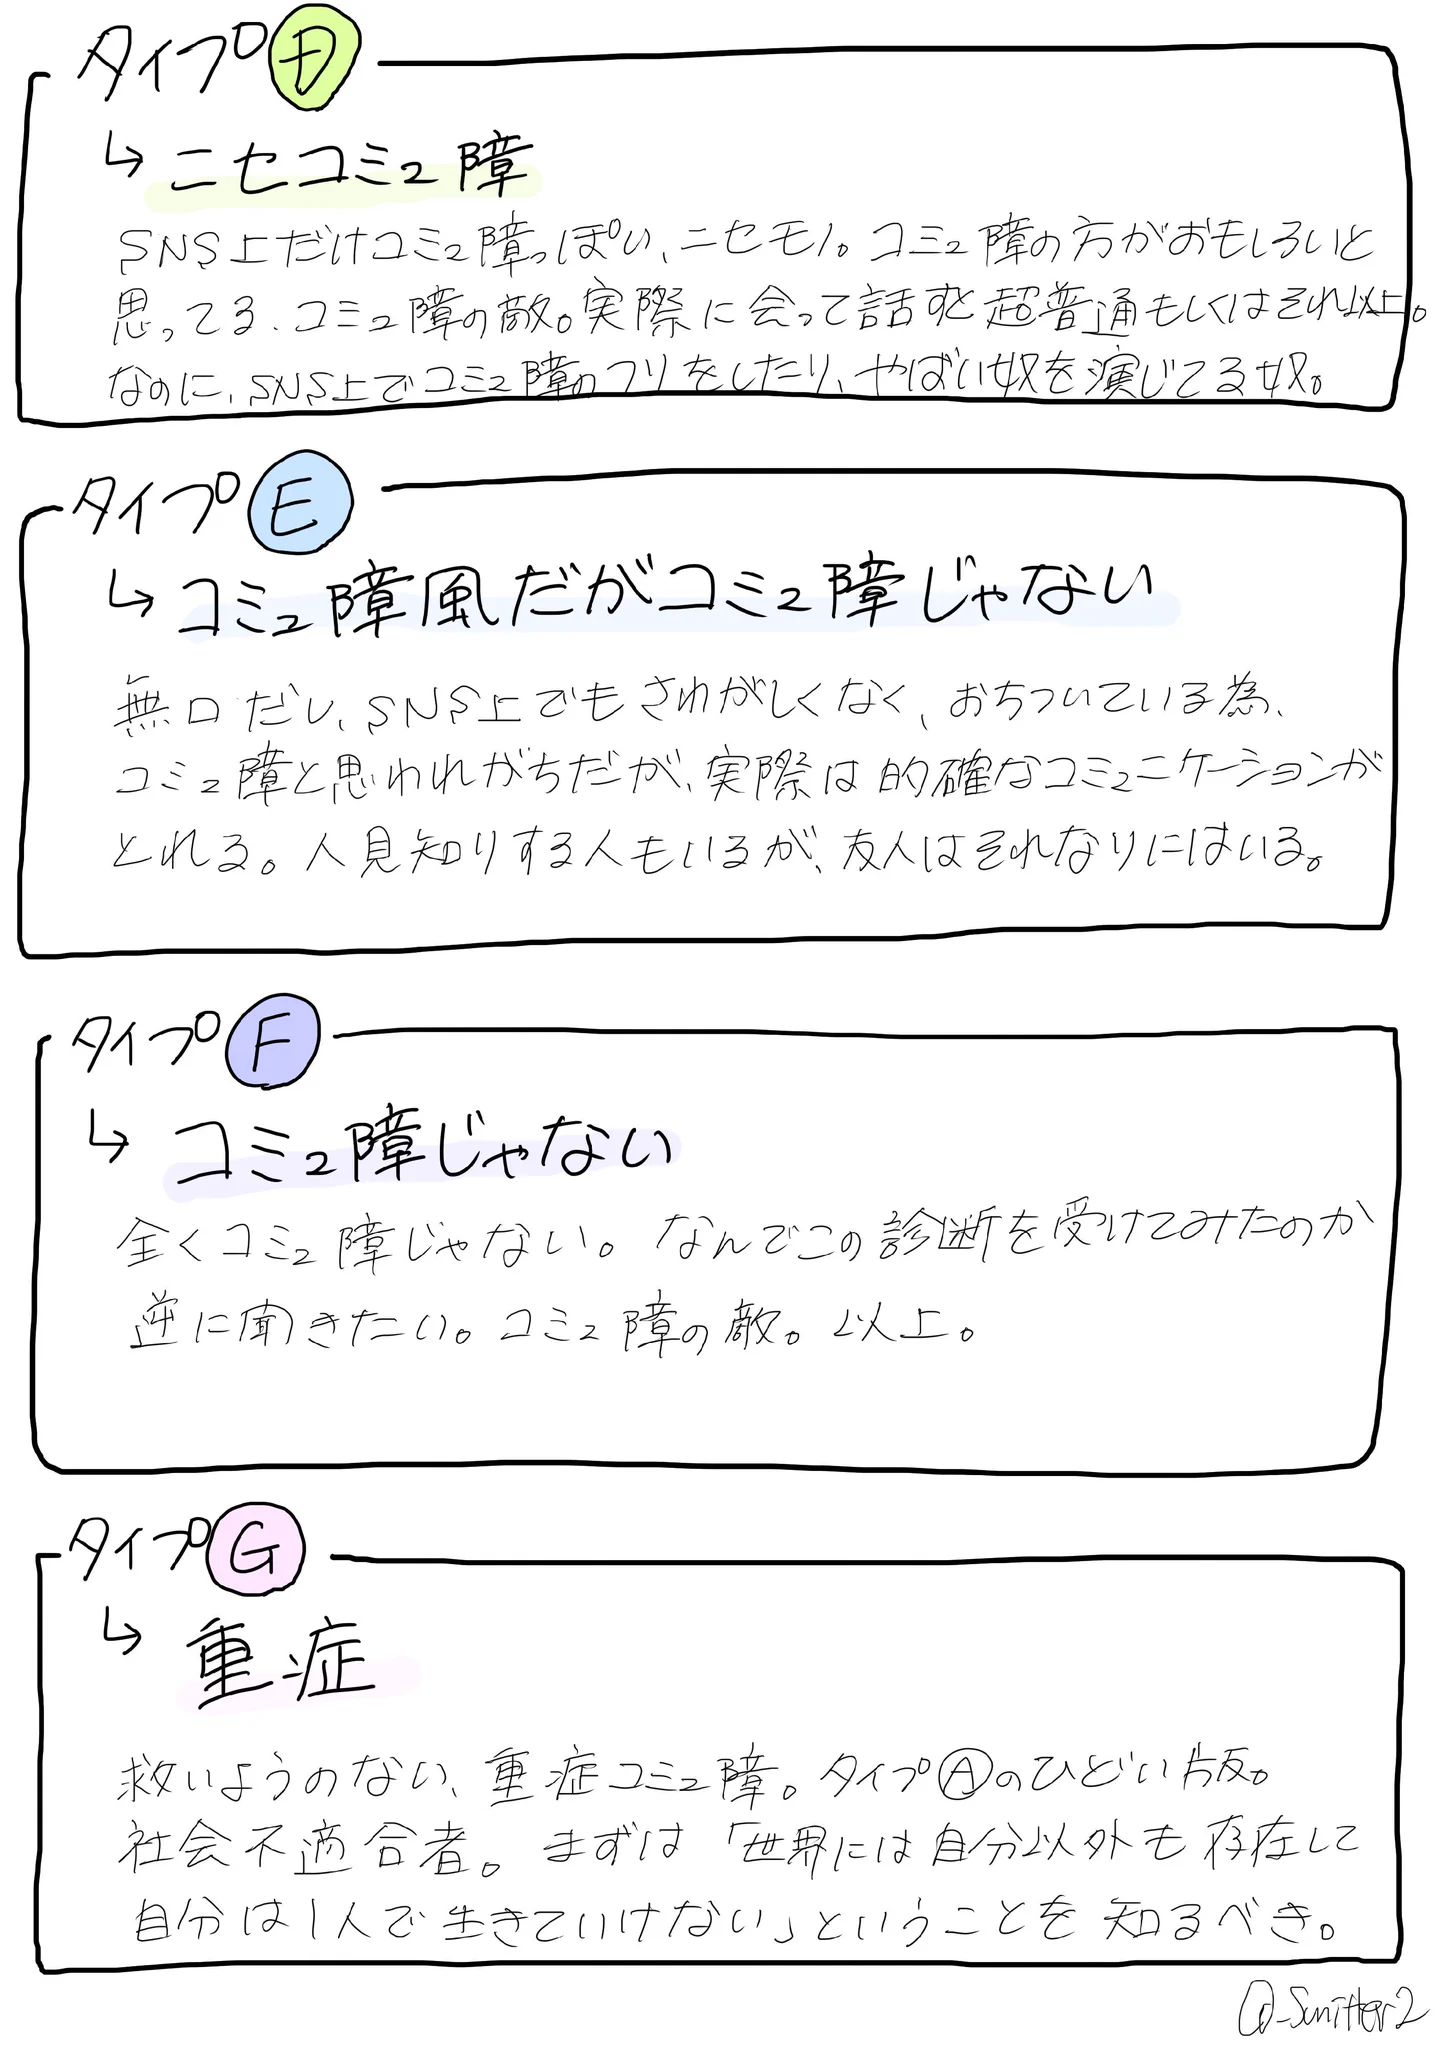 タイプD
↳ ニセコミュ障
SNS上だけコミュ障っぽい、ニセモノ。コミュ障の方がおもしろいと
思ってる、コミュ障の敵。実際に会って話すと超普通もしくはそれ以上。
なのに、SNS上でコミュ障のフリをしたり、やばい奴を演じてる奴。
タイプE
↳ コミュ障風だがコミュ障じゃない
無口だし、SNS上でもさわがしくなく、おちついている為、
コミュ障と思われがちだが、実際は的確なコミュニケーションが
とれる。人見知りする人もいるが、友人はそれなりにはいる。
タイプF
↳ コミュ障じゃない
全くコミュ障じゃない。なんでこの診断を受けてみたのか
逆に聞きたい。コミュ障の敵。以上。
タイプG
↳ 重症
救いようのない、重症コミュ障。タイプⒶのひどい版。
社会不適合者。まずは「世界には自分以外も存在して
自分は1人で生きていけない」ということを知るべき。
@_Sunitter2